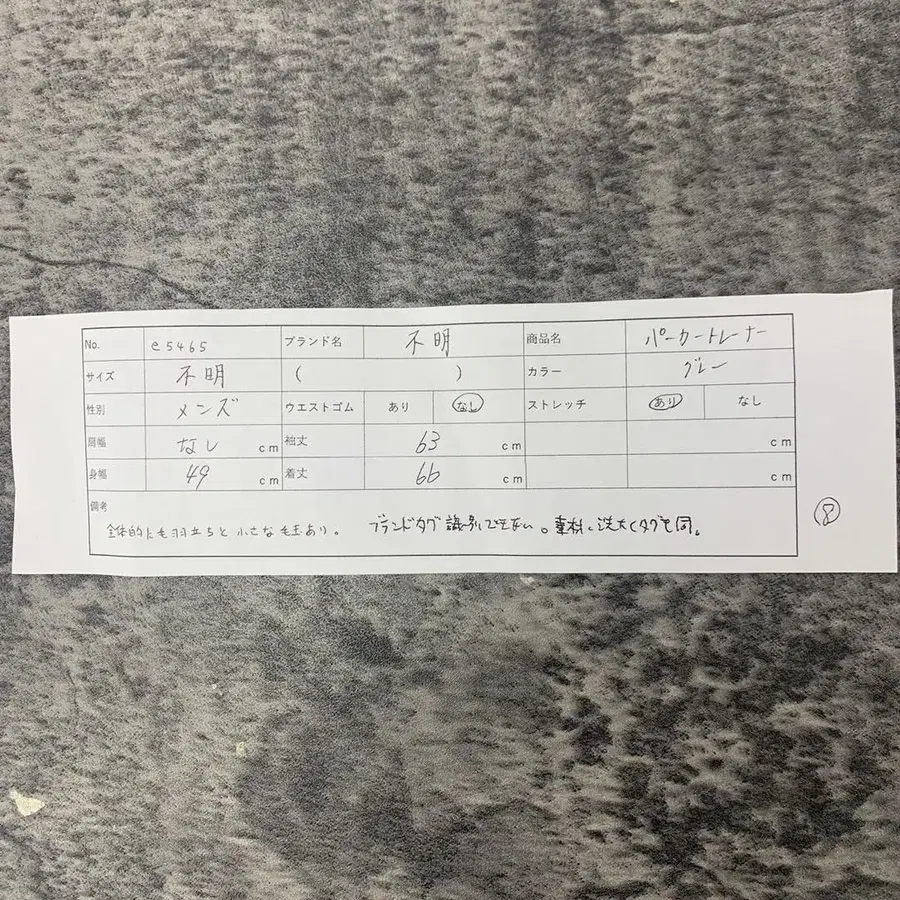 No. e5465 ブランド名 不明 商品名 パーカートレーナー
サイズ 不明 ( ) カラー グレー
性別 メンズ ウエストゴム あり なし ストレッチ あり なし
肩幅 なし cm 袖丈 63 cm cm
身幅 49 cm 着丈 66 cm cm
備考
全体的に毛羽立ちと小さな毛玉あり。 ブランドタグ識別できない。素材、洗たくタグも同。
⑧